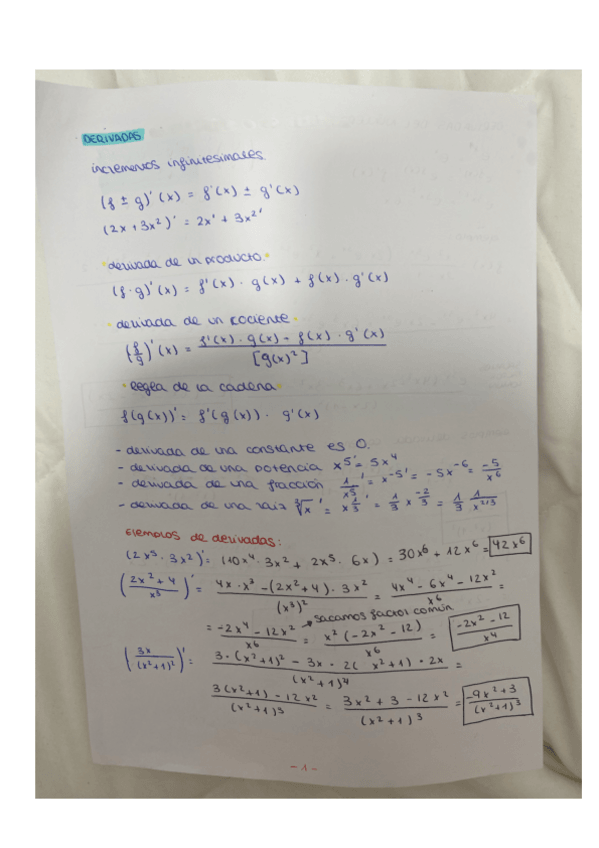 DERIVADAS
incrementos infinitesimales
(f ± g)' (x) = f'(x) ± g'(x)
(2x + 3x²)' = 2x' + 3x²'
derivada de un producto.
(f · g)' (x) = f'(x) · g(x) + f(x) · g'(x)
derivada de un cociente
(f/g)' (x) = f'(x) · g(x) - f(x) · g'(x) / [g(x)²]
regla de la cadena
f(g(x))' = f'(g(x)) · g'(x)
- derivada de una constante es 0.
- derivada de una potencia x⁵' = 5x⁴
- derivada de una fracción 1/x⁵ ' = x⁻⁵' = -5x⁻⁶ = -5/x⁶
- derivada de una raiz ∛x ' = x^1/3 ' = 1/3 x^-2/3 = 1/3 1/x^2/3
Ejemplos de derivadas:
(2x⁵ · 3x²)' = (10x⁴ · 3x² + 2x⁵ · 6x) = 30x⁶ + 12x⁶ = 42x⁶
(2x² + 4 / x³)' = 4x · x³ - (2x² + 4) · 3x² / (x³)² = 4x⁴ - 6x⁴ - 12x² / x⁶ =
= -2x⁴ - 12x² / x⁶ = x² (-2x² - 12) / x⁶ = -2x² - 12 / x⁴
→ sacamos factor común
(3x / (x² + 1)²)' = 3 · (x² + 1)² - 3x · 2( x² + 1) · 2x / (x² + 1)⁴ =
3(x² + 1) - 12x² / (x² + 1)³ = 3x² + 3 - 12x² / (x² + 1)³ = -9x² + 3 / (x² + 1)³
- 1 -